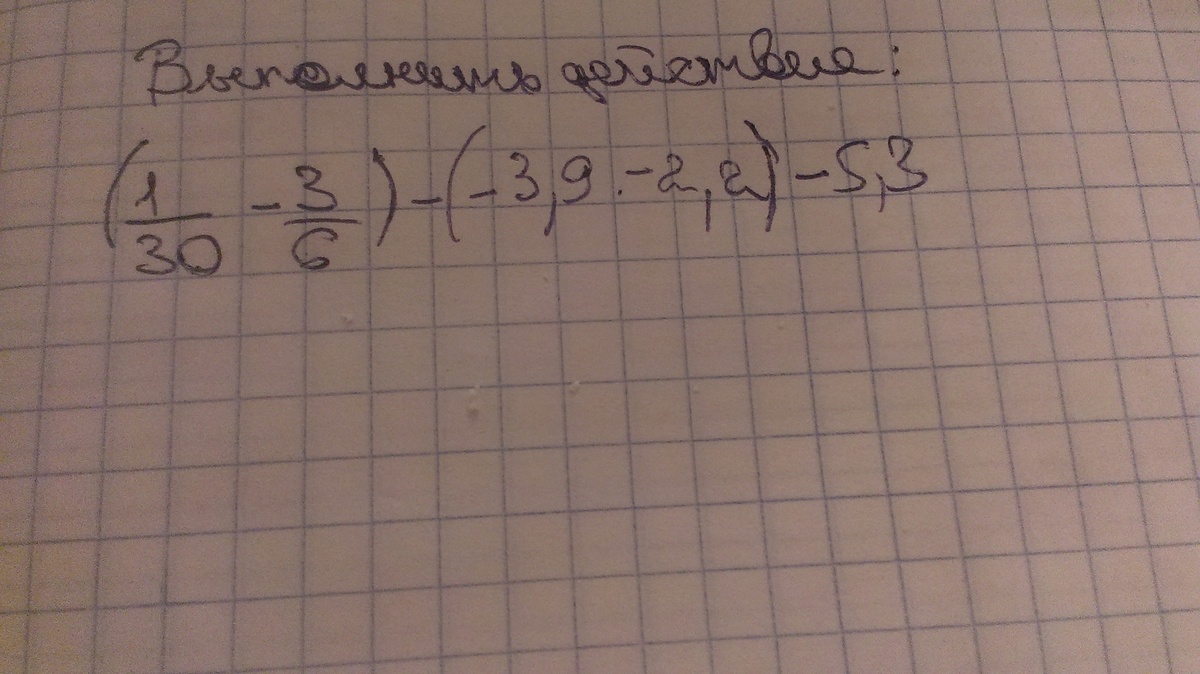 Выполнить действие:
(1/30 - 3/6) - (-3,9 . -2,2) - 5,3